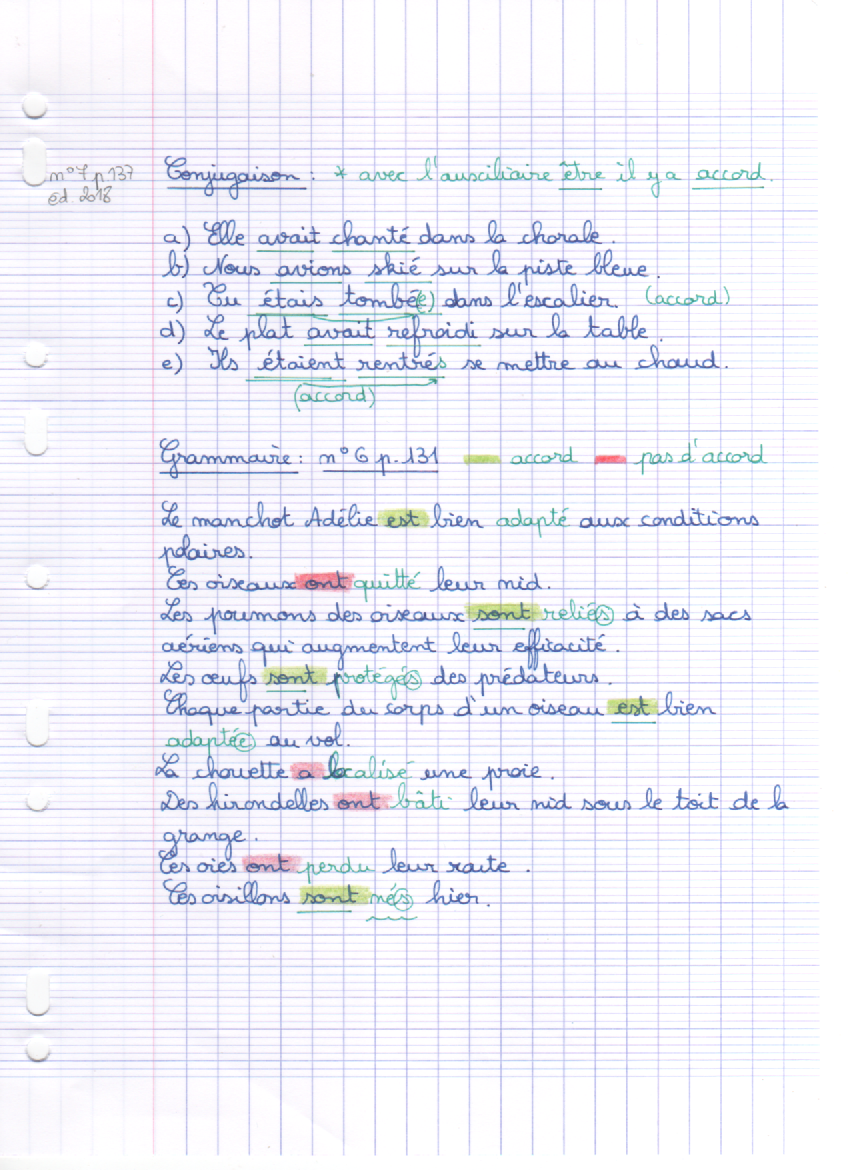 n°7 p.137
éd. 2018
Conjugaison : * avec l'auxciliaire être il y a accord.
a) Elle avait chanté dans la chorale.
b) Nous avions skié sur la piste bleue.
c) Tu étais tombé(e) dans l'escalier. (accord)
d) Le plat avait refroidi sur la table.
e) Ils étaient rentrés se mettre au chaud.
(accord)
Grammaire : n°6 p.131 accord pas d'accord
Le manchot Adélie est bien adapté aux conditions
polaires.
Ces oiseaux ont quitté leur nid.
Les poumons des oiseaux sont reliés à des sacs
aériens qui augmentent leur efficacité.
Les œufs sont protégés des prédateurs.
Chaque partie du corps d'un oiseau est bien
adaptée au vol.
La chouette a localisé une proie.
Des hirondelles ont bâti leur nid sous le toit de la
grange.
Ces oies ont perdu leur route.
Ces oisillons sont nés hier.